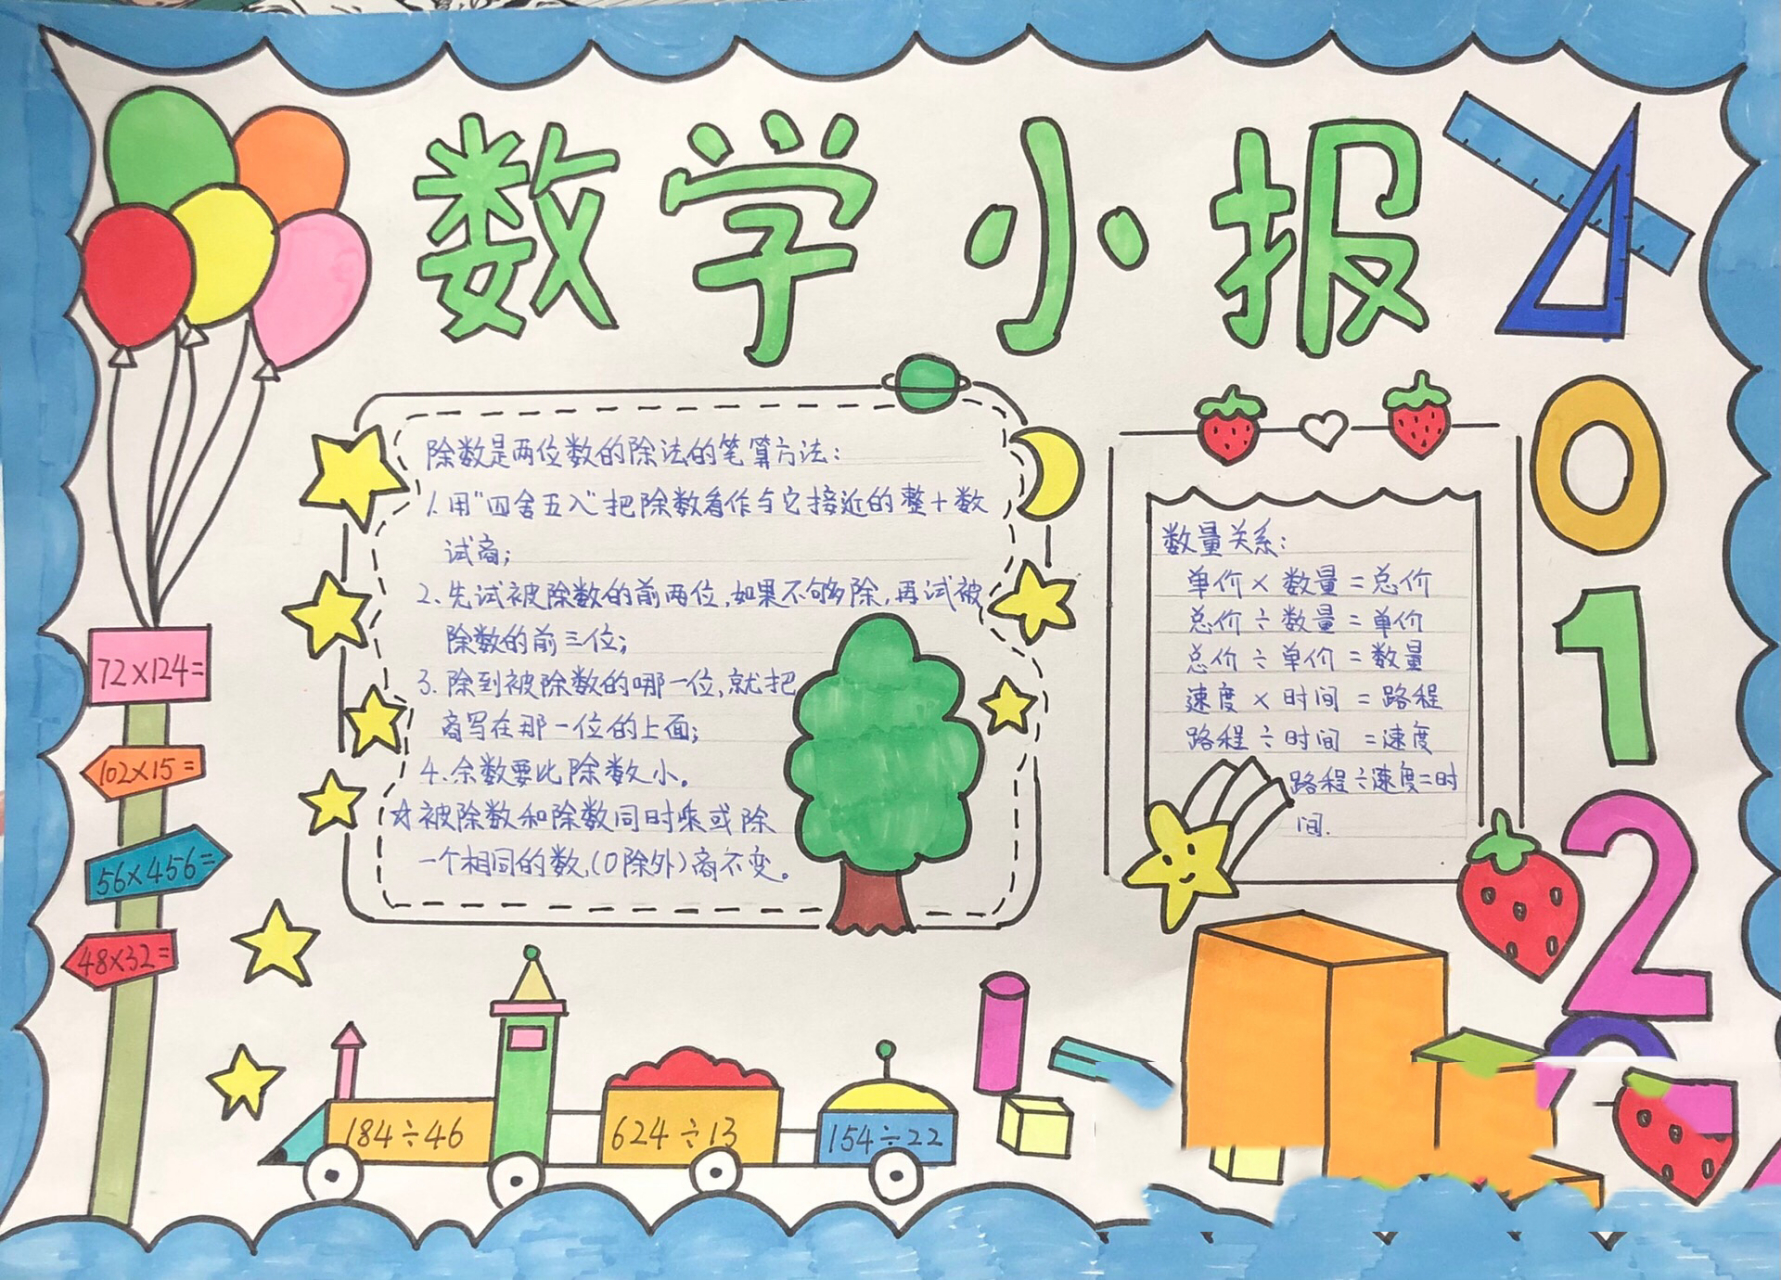 数学小报
除数是两位数的除法的笔算方法:
1.用"四舍五入"把除数看作与它接近的整十数
试商;
2.先试被除数的前两位,如果不够除,再试被
除数的前三位;
3.除到被除数的哪一位,就把
商写在那一位的上面;
4.余数要比除数小。
☆被除数和除数同时乘或除
一个相同的数,(0除外)商不变。
数量关系:
单价×数量=总价
总价÷数量=单价
总价÷单价=数量
速度×时间=路程
路程÷时间=速度
路程÷速度=时
间.
72×124=
102×15=
56×456=
48×32=
184÷46
624÷13
154÷22
0
1
2